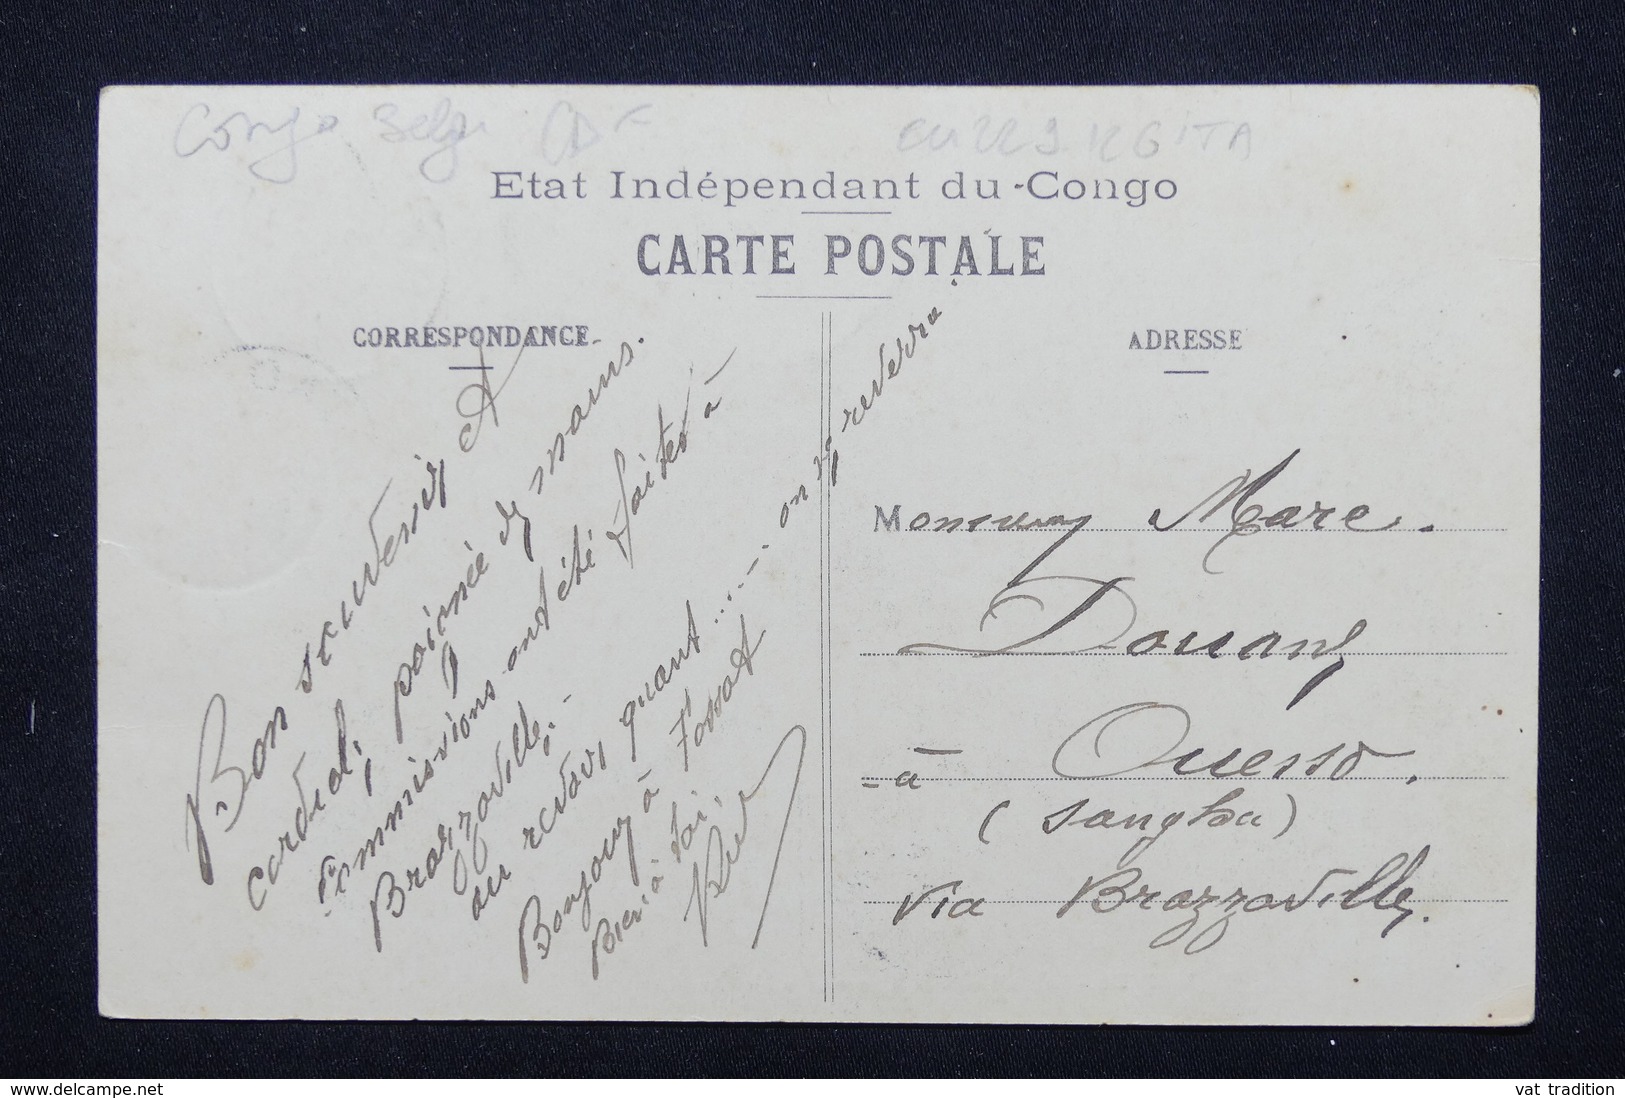 Congo Belge
Etat Indépendant du Congo
CARTE POSTALE
CORRESPONDANCE
ADRESSE
Bon souvenir et
cordiale poignée de mains.
Commissions ont été faites à
Brazzaville.
au revoir quant...... on se reverra.
Bonjour à Fossat
Bien à toi.
Monsieur Marc.
Douane
à Ouesso.
(Sangha)
via Brazzaville.
www.delcampe.net
vat tradition